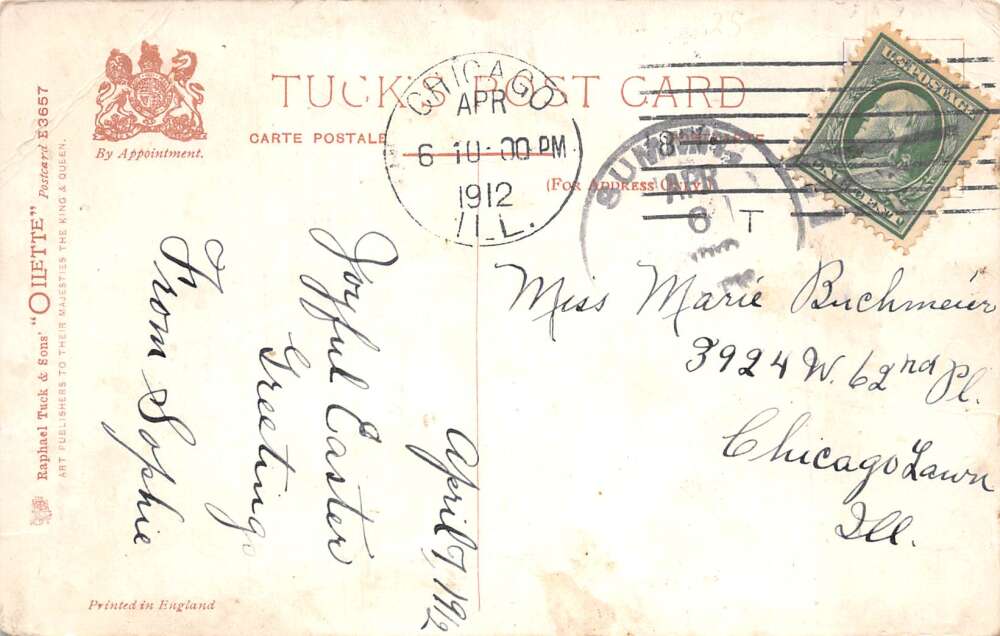 TUCK'S POST CARD
CARTE POSTALE
(FOR ADDRESS ONLY.)
By Appointment.
Raphael Tuck & Sons' "OILETTE" Postcard E3657
ART PUBLISHERS TO THEIR MAJESTIES THE KING & QUEEN.
Printed in England
CHICAGO
APR
6 10-00 PM
1912
ILL.
APR
6
T
U.S. POSTAGE
April 7, 1912
Joyful Easter
Greeting
From Sophie
Miss Marie Buchmeier
3924 W. 62nd Pl.
Chicago Lawn
Ill.